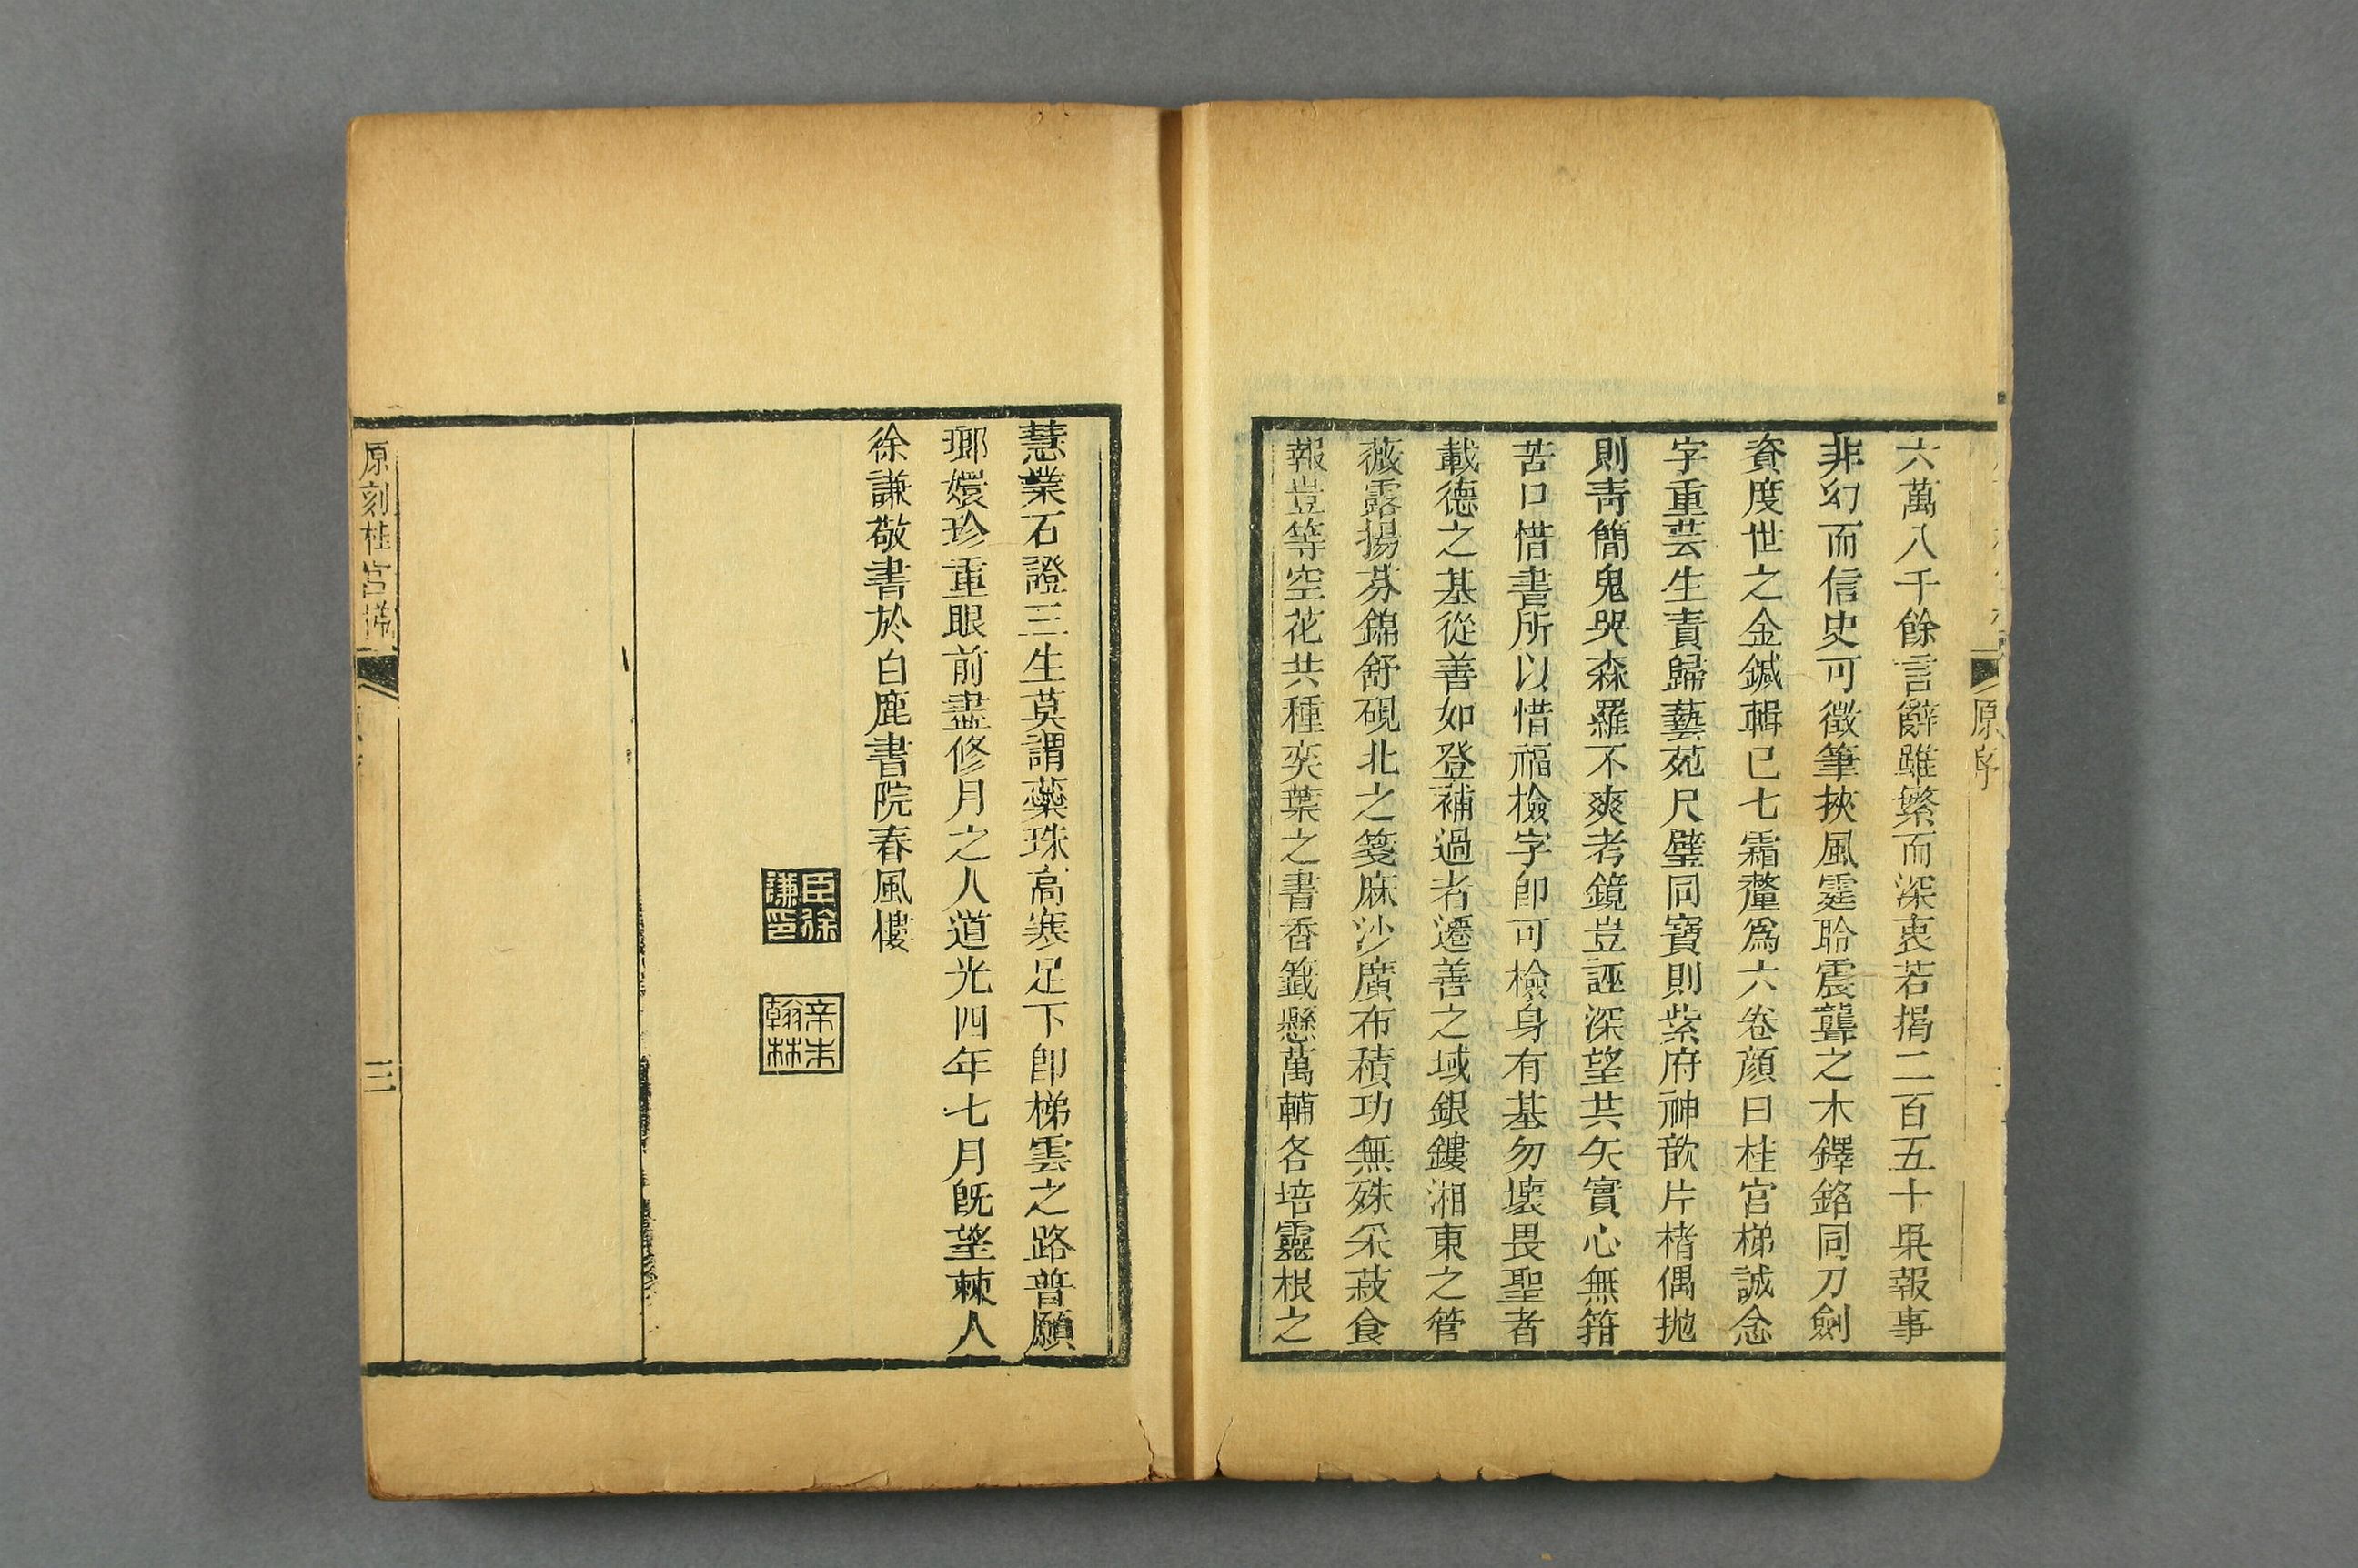 六萬八千餘言辭雖繁而深衷若揭二百五十畀報事
非幻而信史可徵筆挾風霆聆震聾之木鐸銘同刀劍
資度世之金鍼輯已七霜釐爲六卷顔曰桂宮梯誠念
字重芸生責歸藝苑尺璧同寶則紫府神歆片楮偶抛
則靑簡鬼哭森羅不爽考鏡豈誣深望共矢實心無箝
苦口惜書所以惜福檢字卽可檢身有基勿壞畏聖者
載德之基從善如登補過者遷善之域銀鏤湘東之管
薇露揚芬錦舒硯北之箋麻沙廣布積功無殊采菽食
報豈等空花共種奕葉之書香籤懸萬軸各培靈根之
原序
慧業石證三生莫謂蘂珠高寒足下卽梯雲之路普願
瑯嬛珍重眼前盡修月之人道光四年七月旣望棘人
徐謙敬書於白鹿書院春風樓
臣徐謙印
辛未翰林
原刻桂宮梯
三